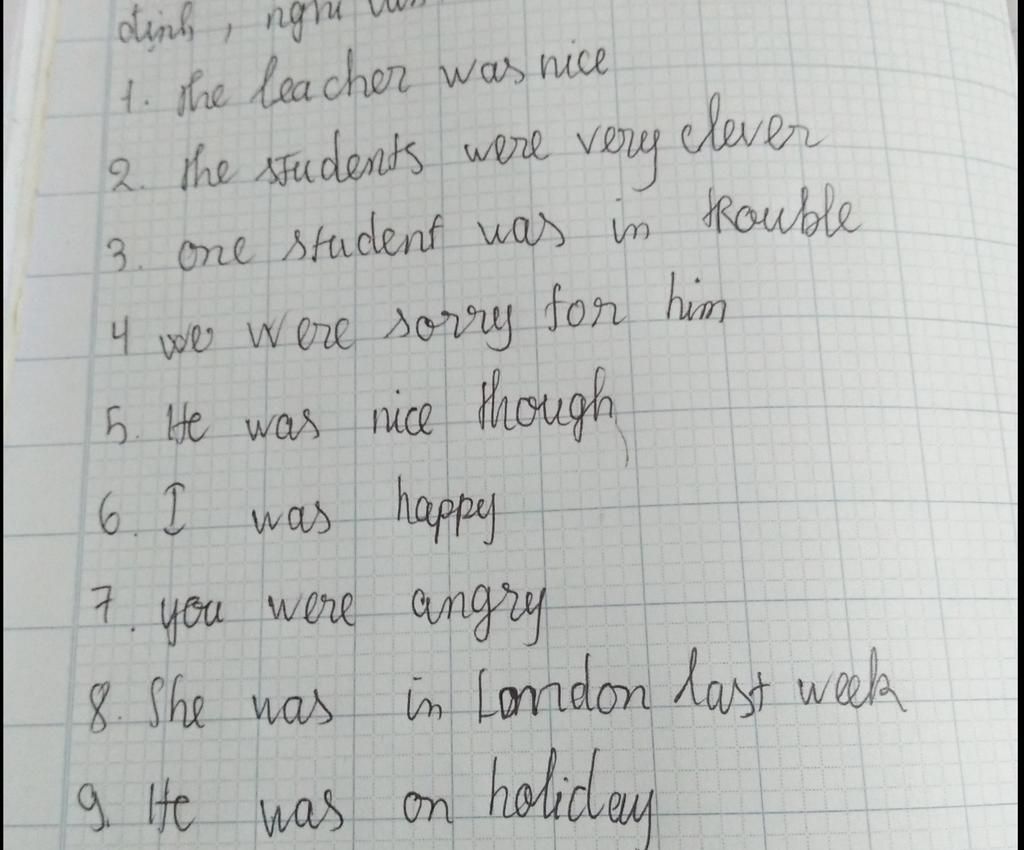 định, nghi
1. the teacher was nice
2. the students were very clever
3. one student was in trouble
4 we were sorry for him
5. He was nice though
6. I was happy
7. you were angry
8. She was in London last week
9. He was on holiday